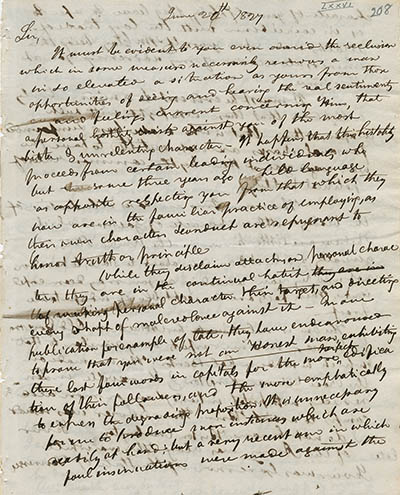 LXXVI
208
June 20th 1827
Sir,
It must be evident to you even amid the seclusion
which in some measure necessarily removes a man
in so elevated a situation as yours from those
opportunities of seeing and hearing the real sentiments
and feelings current concerning him, that
a personal hostility exists against you of the most
bitter & unrelenting character. It happens that this hostility
proceeds from certain leading individuals who
but some three years ago held language
as opposite respecting you from that which they
now are in the familiar practice of employing, as
their own character & conduct are repugnant to
honor truth or principle
While they disclaim attacks on personal charac
ter, they are in the continual habit they are in
of making personal character their target, and directing
every shaft of malevolence against it. In a
publication for example of late, they have endeavoured
to prove that you were not an Honest man, exhibiting
these last four words in capitals for the more edifica
tion of their followers, and the more emphatically
to express the degrading proposition. It is unnecessary
for me to produce instances which are
readily at hand: but a very recent one in which
foul insinuations were made against the